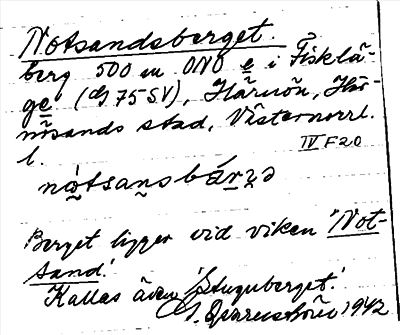 Notsandsberget.
berg 500 m ONO e i Fisklä-
ge (dg 75 SV), Härnön, Här-
nösands stad, Västernorrl.
l.
IV F20
nòtsansbárzə
Berget ligger vid viken 'Not-
sand'.
Kallas även 'Stuguberget'.
1942